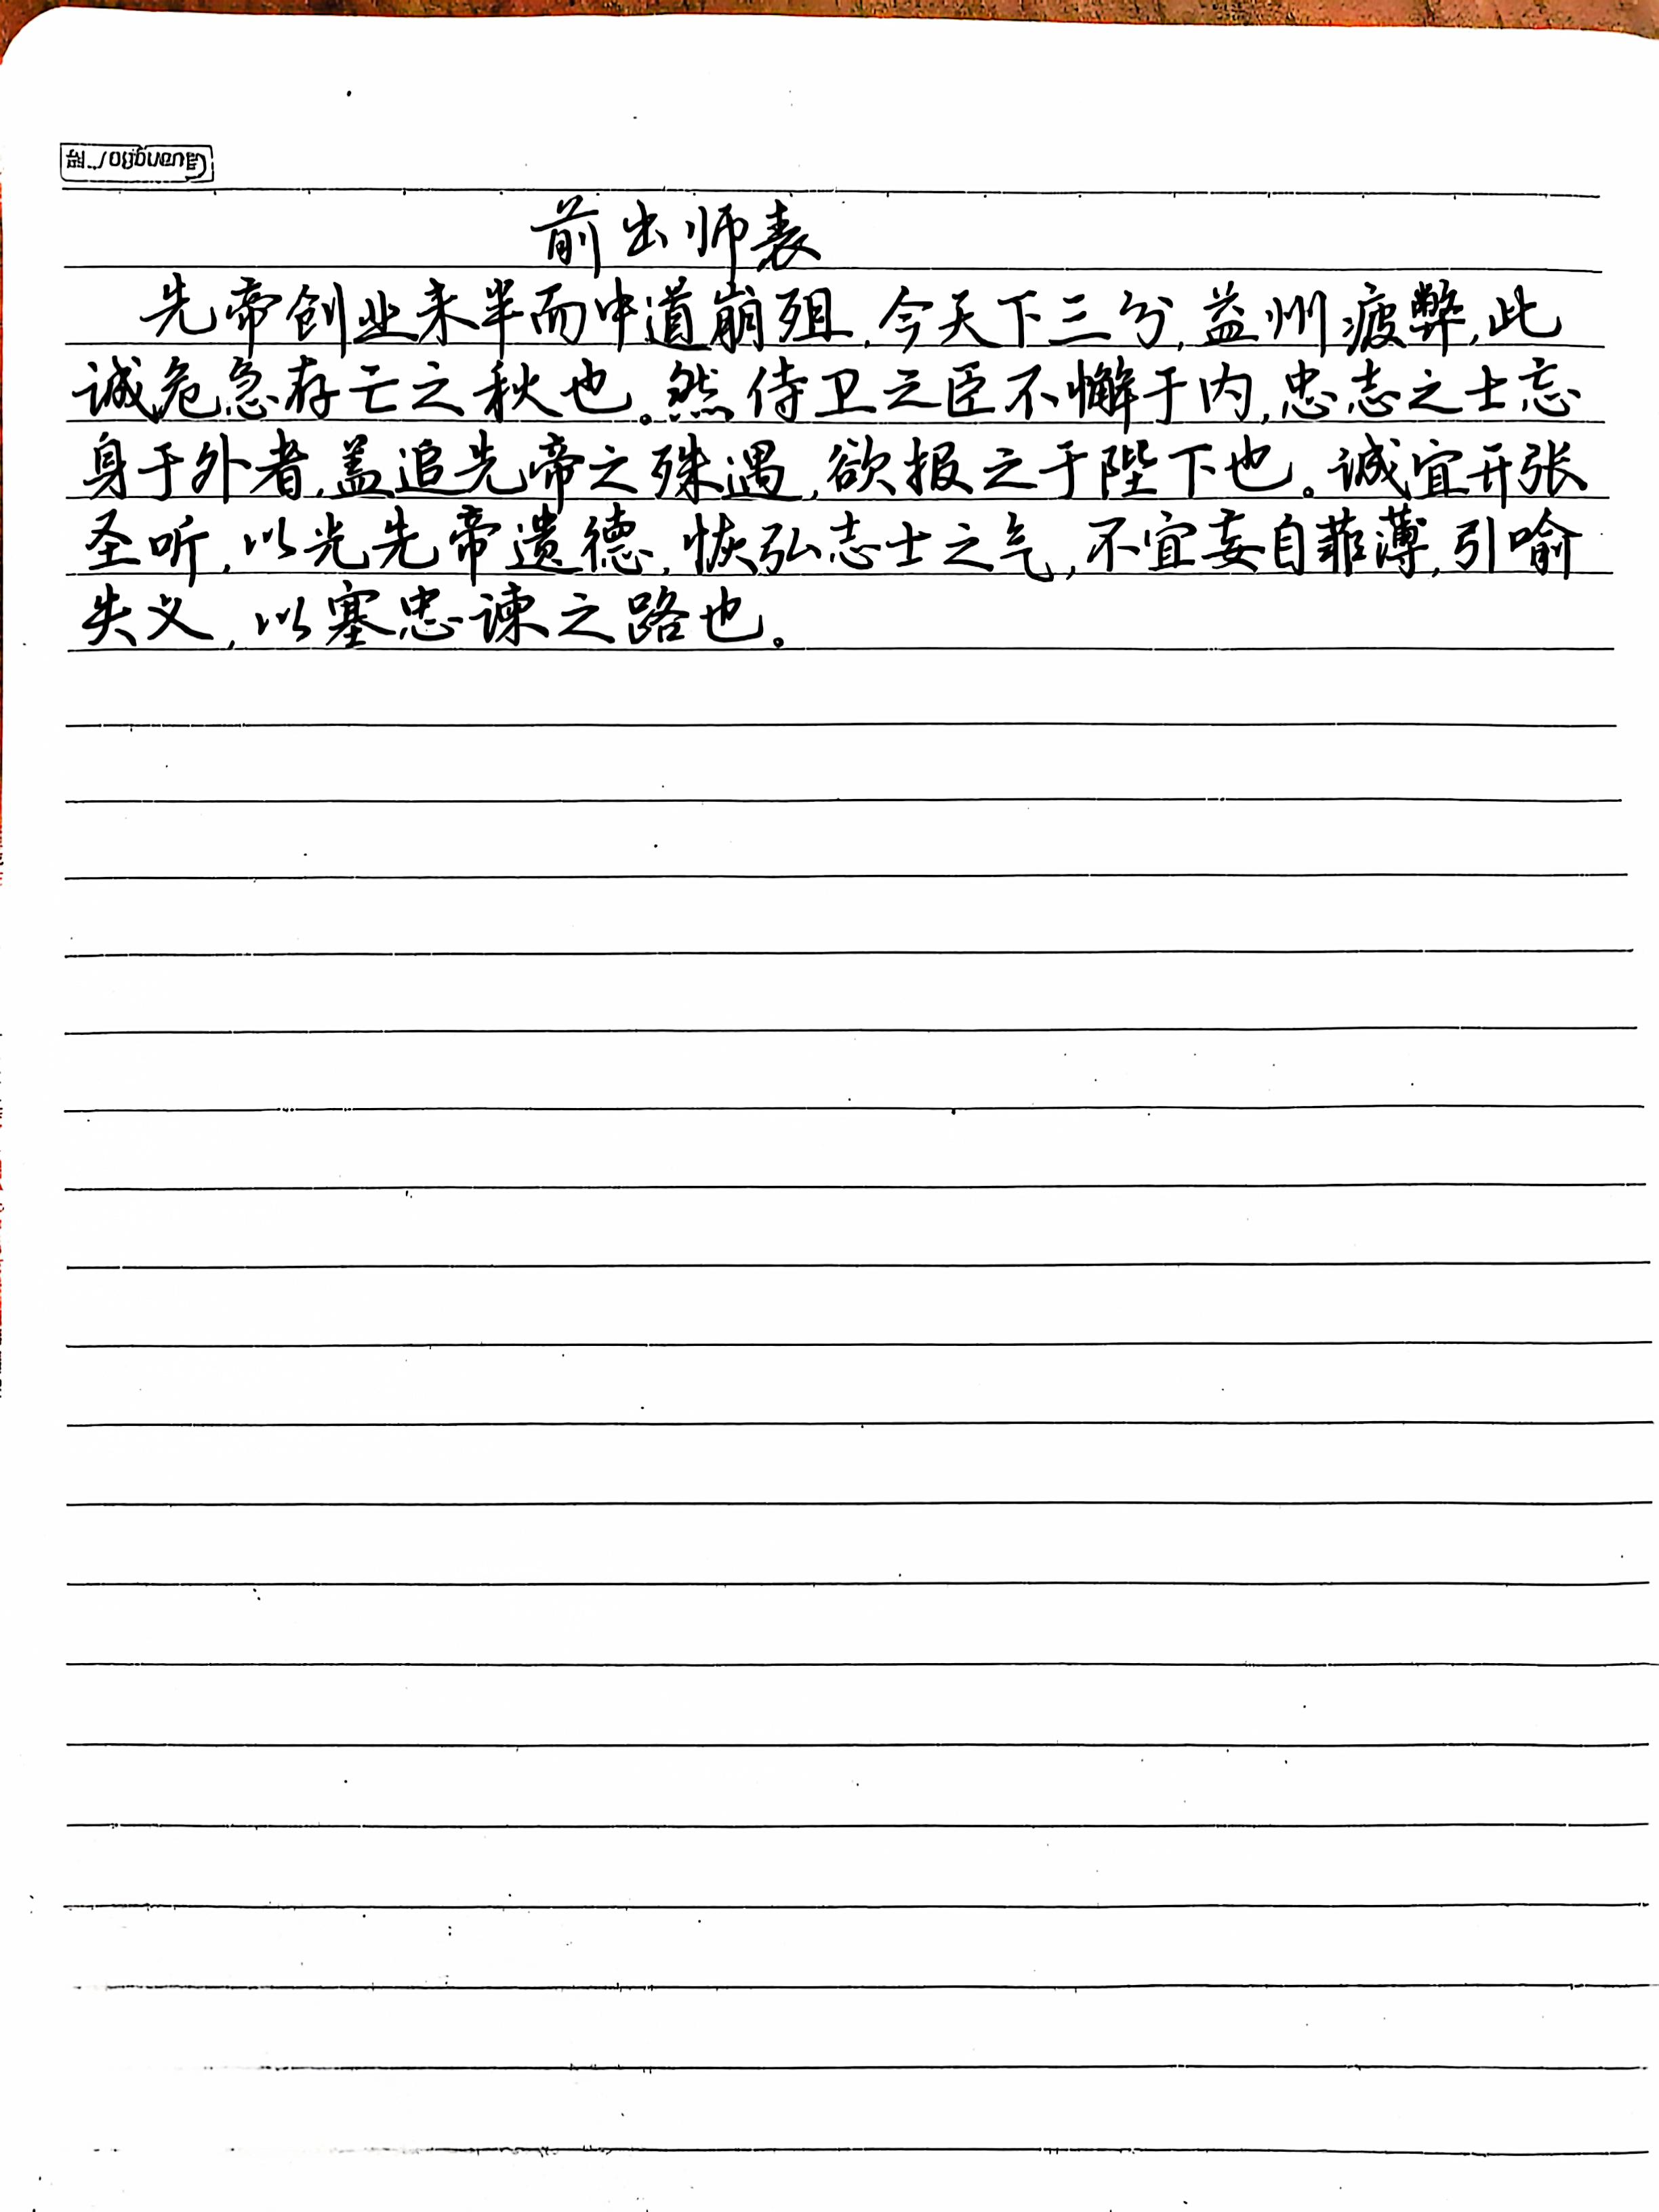 前出师表
先帝创业未半而中道崩殂,今天下三分,益州疲弊,此
诚危急存亡之秋也。然侍卫之臣不懈于内,忠志之士忘
身于外者,盖追先帝之殊遇,欲报之于陛下也。诚宜开张
圣听,以光先帝遗德,恢弘志士之气,不宜妄自菲薄,引喻
失义,以塞忠谏之路也。